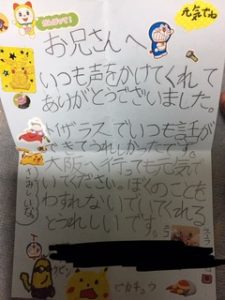 がんばって!
元気でね
お兄さんへ
いつも声をかけてくれて
ありがとうございました。
トザラスでいつも話が
できてうれしかったです。
大阪へ行っても元気で
いてください。ぼくのことを
わすれないでいてくれる
とうれしいです。
ピカチュウ